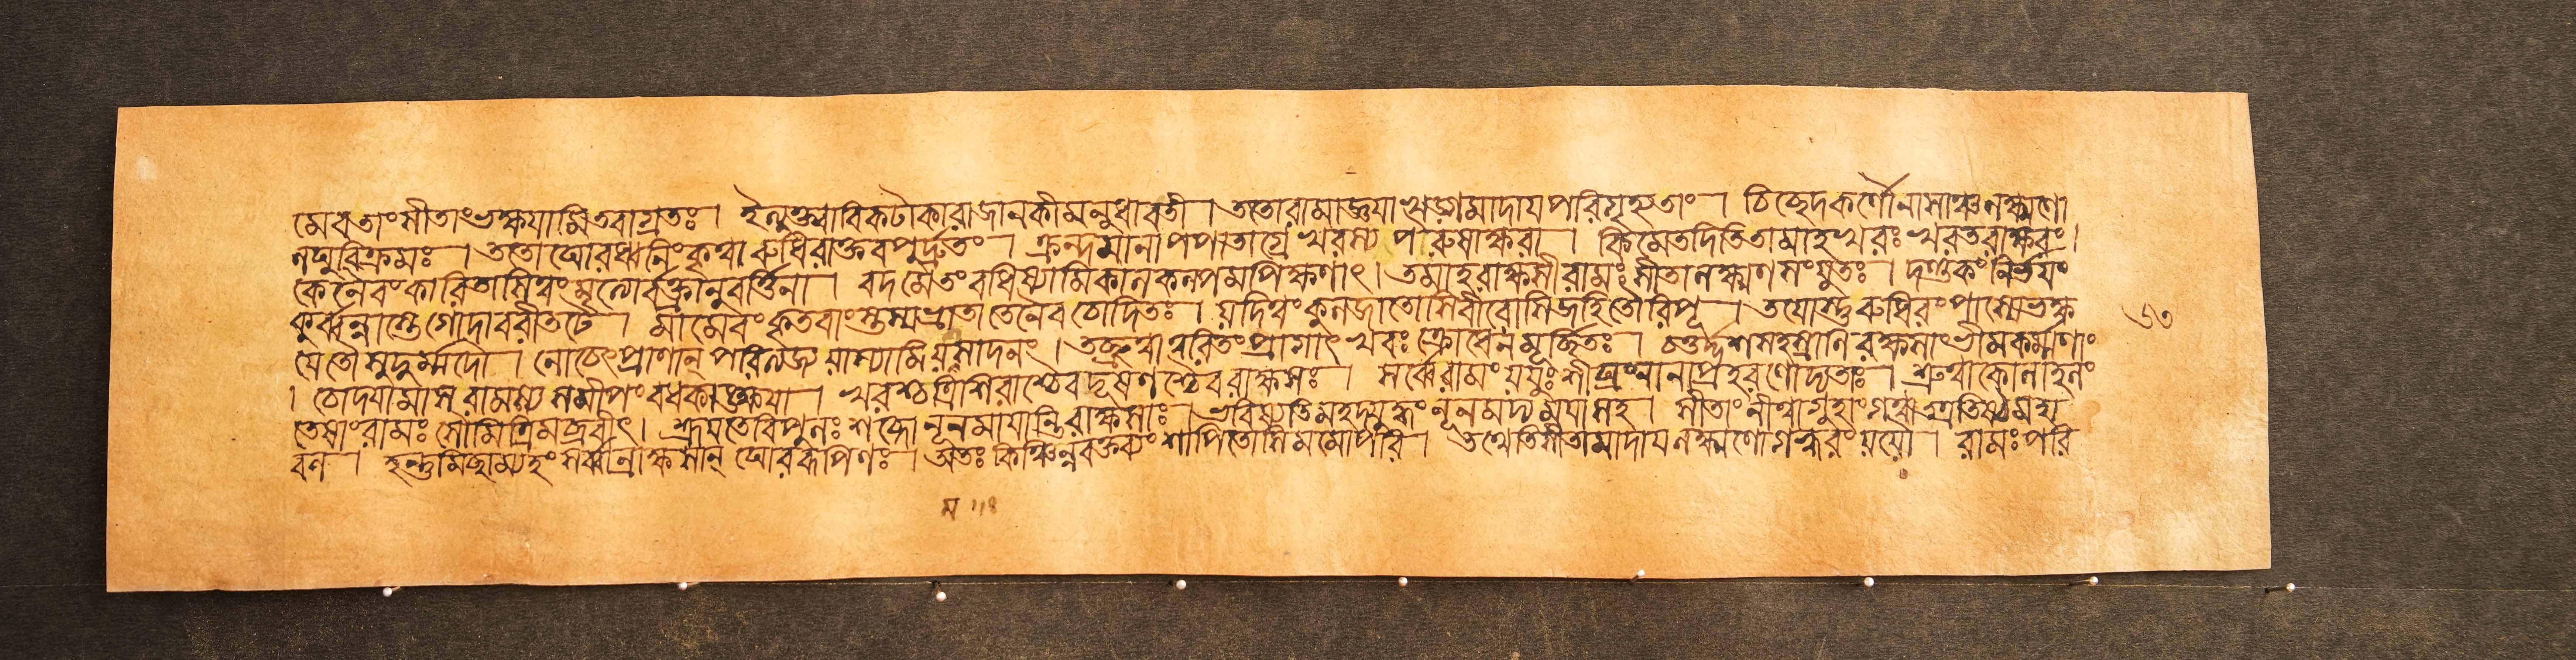 মেবতাংসীতাংভক্ষযামিতবাগ্রতঃ। ইত্যুক্ত্বাবিকটাকারাজানকীমনুধাবতী। ততোরামাজ্ঞযাখড্গমাদাযপরিগৃহ্যতাং। চিচ্ছেদকর্ণৌনাসাঞ্চলক্ষ্মণো
লঘুবিক্রমঃ। ততোঘোরধ্বনিংকৃত্বারুধিরাক্তবপুর্দ্রুতং। ক্রন্দমানাপপাতাগ্রেখরস্য পরুষাক্ষরা। কিমেতদিতিতামাহখরঃখরতরাক্ষরং।
কেনৈবংকারিতাসিত্বংমৃত্যোর্বক্ত্রানুবর্ত্তিনা। বদমেতংবধিষ্যামিকালকল্পমপিক্ষণাৎ। তমাহরাক্ষসীরামঃসীতালক্ষ্মণসংযুতঃ। দণ্ডকংনির্ভযং
কুর্ব্বন্নাস্তেগোদাবরীতটে। মামেবংকৃতবাংস্তস্যভ্রাতাতেনৈবচোদিতঃ। যদিত্বংকুলজাতোসিবীরোসিজহিতৌরিপূ। তযোস্তুরুধিরংপাস্যেভক্ষ
যেতৌসুদুর্ম্মদৌ। নোচেৎপ্রাণান্ পরিত্যজ্য যাস্যামিযমসাদনং। তচ্ছ্রুত্বাত্বরিতংপ্রাগাৎখরঃক্রোধেনমূর্চ্ছিতঃ। চতুর্দ্দশসহস্রাণিরক্ষসাংভীমকর্ম্মণাং
। চোদযামাস রামস্য সমীপংবধকাংক্ষযা। খরশ্চত্রিশিরাশ্চৈবদূষণশ্চৈবরাক্ষসঃ। সর্ব্বেরামংযযুঃশীঘ্রংনানাপ্রহরণোদ্যতাঃ। শ্রুত্বাকোলাহলং
তেষাংরামঃসৌমিত্রিমব্রবীৎ। শ্রূযতেবিপুলঃশব্দোনূনমাযান্তিরাক্ষসাঃ। ভবিষ্যতিমহদ্যুদ্ধংনূনমদ্যমযাসহ। সীতাংনীত্বাগুহাংগত্বাতত্রতিষ্ঠমহা
বল। হন্তুমিচ্ছাম্যহংসর্ব্বান্রাক্ষসান্ ঘোররূপিণঃ। অতঃকিঞ্চিন্নবক্তব্যংশাপিতোসিমমোপরি। তথেতিসীতামাদাযলক্ষ্মণোগহ্বরংযযৌ। রামঃপরি